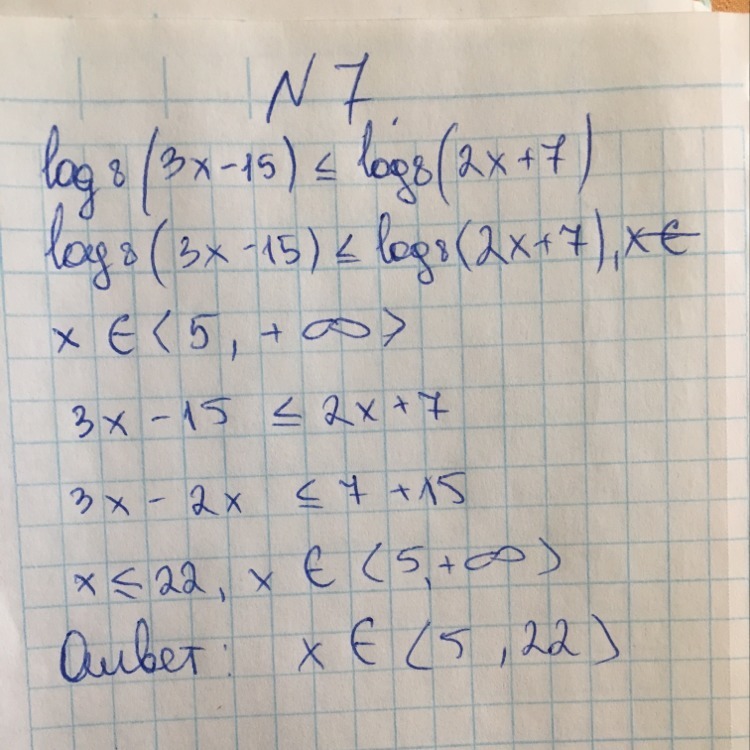 N 7
log₈(3x-15) ≤ log₈(2x+7)
log₈(3x-15) ≤ log₈(2x+7), x∈
x ∈ (5, +∞)
3x - 15 ≤ 2x + 7
3x - 2x ≤ 7 + 15
x ≤ 22, x ∈ (5, +∞)
Ответ: x ∈ (5, 22)